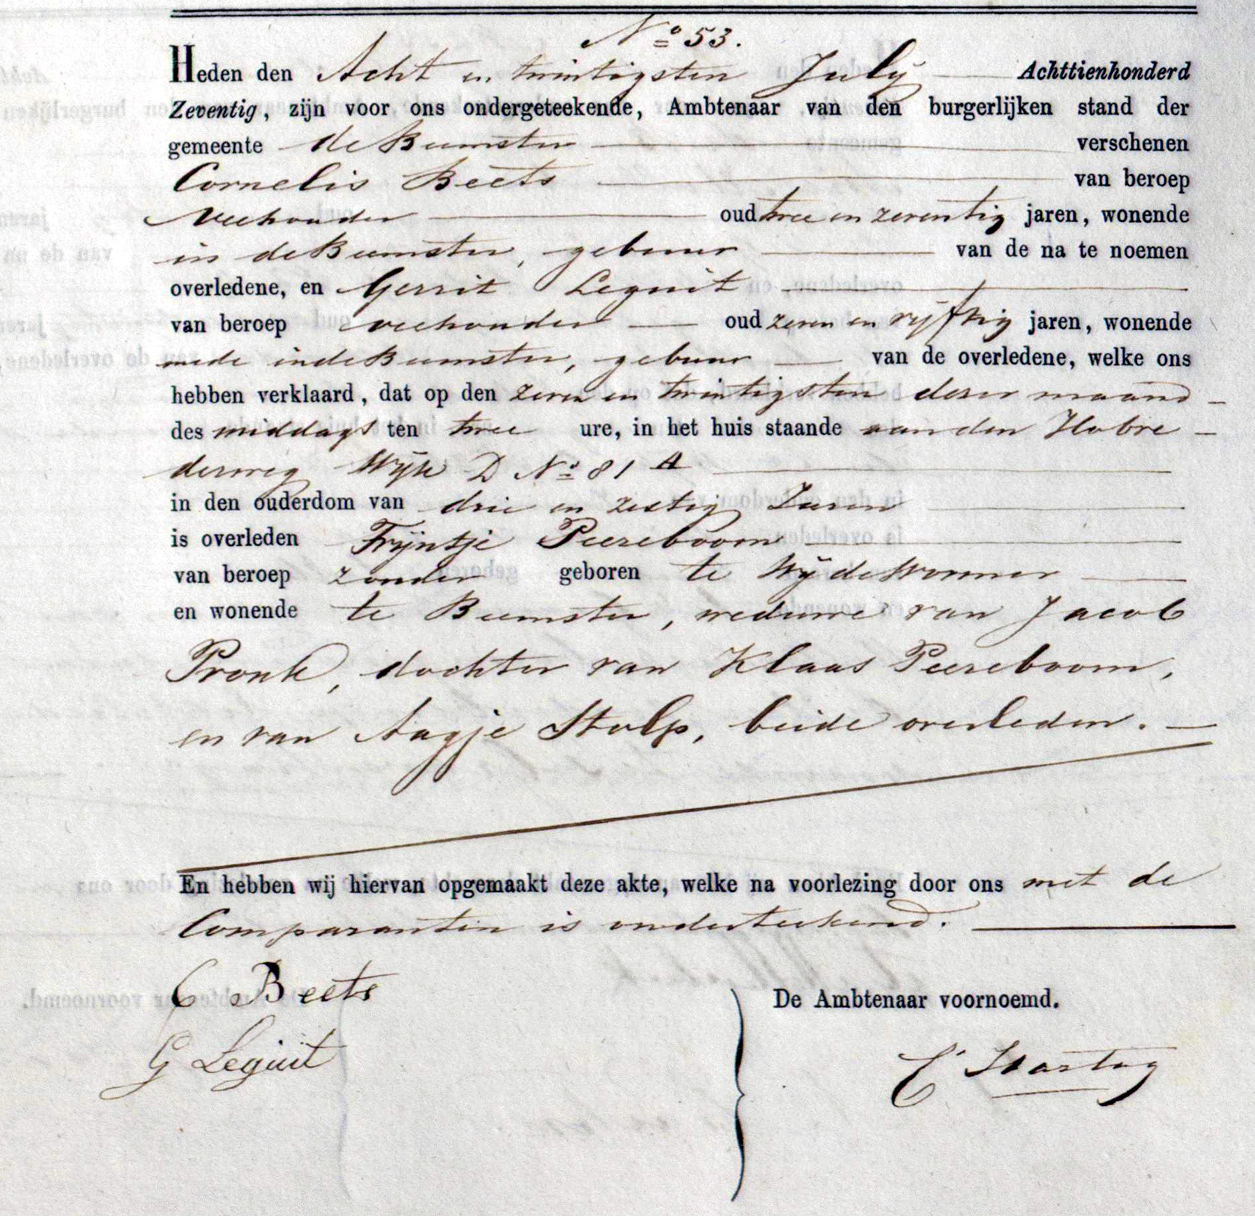 No 53.
Heden den Acht en twintigsten July Achttienhonderd
Zeventig, zijn voor ons ondergeteekende, Ambtenaar van den burgerlijken stand der
gemeente de Beemster verschenen
Cornelis Beets van beroep
veehouder oud twee en zeventig jaren, wonende
in de Beemster, gebuur van de na te noemen
overledene, en Gerrit Leguit
van beroep veehouder oud zeven en vyftig jaren, wonende
mede in de Beemster, gebuur van de overledene, welke ons
hebben verklaard, dat op den zeven en twintigsten dezer maand
des middags ten twee ure, in het huis staande aan den Hobre-
derweg Wijk D No 81 A
in den ouderdom van drie en zestig Jaren
is overleden Trijntje Peereboom
van beroep zonder geboren te Wijdewormer
en wonende te Beemster, weduwe van Jacob
Pronk, dochter van Klaas Peereboom,
en van Aagje Stolp, beide overleden.
En hebben wij hiervan opgemaakt deze akte, welke na voorlezing door ons met de
Comparanten is onderteekend.
C Beets
De Ambtenaar voornoemd.
G Leguit